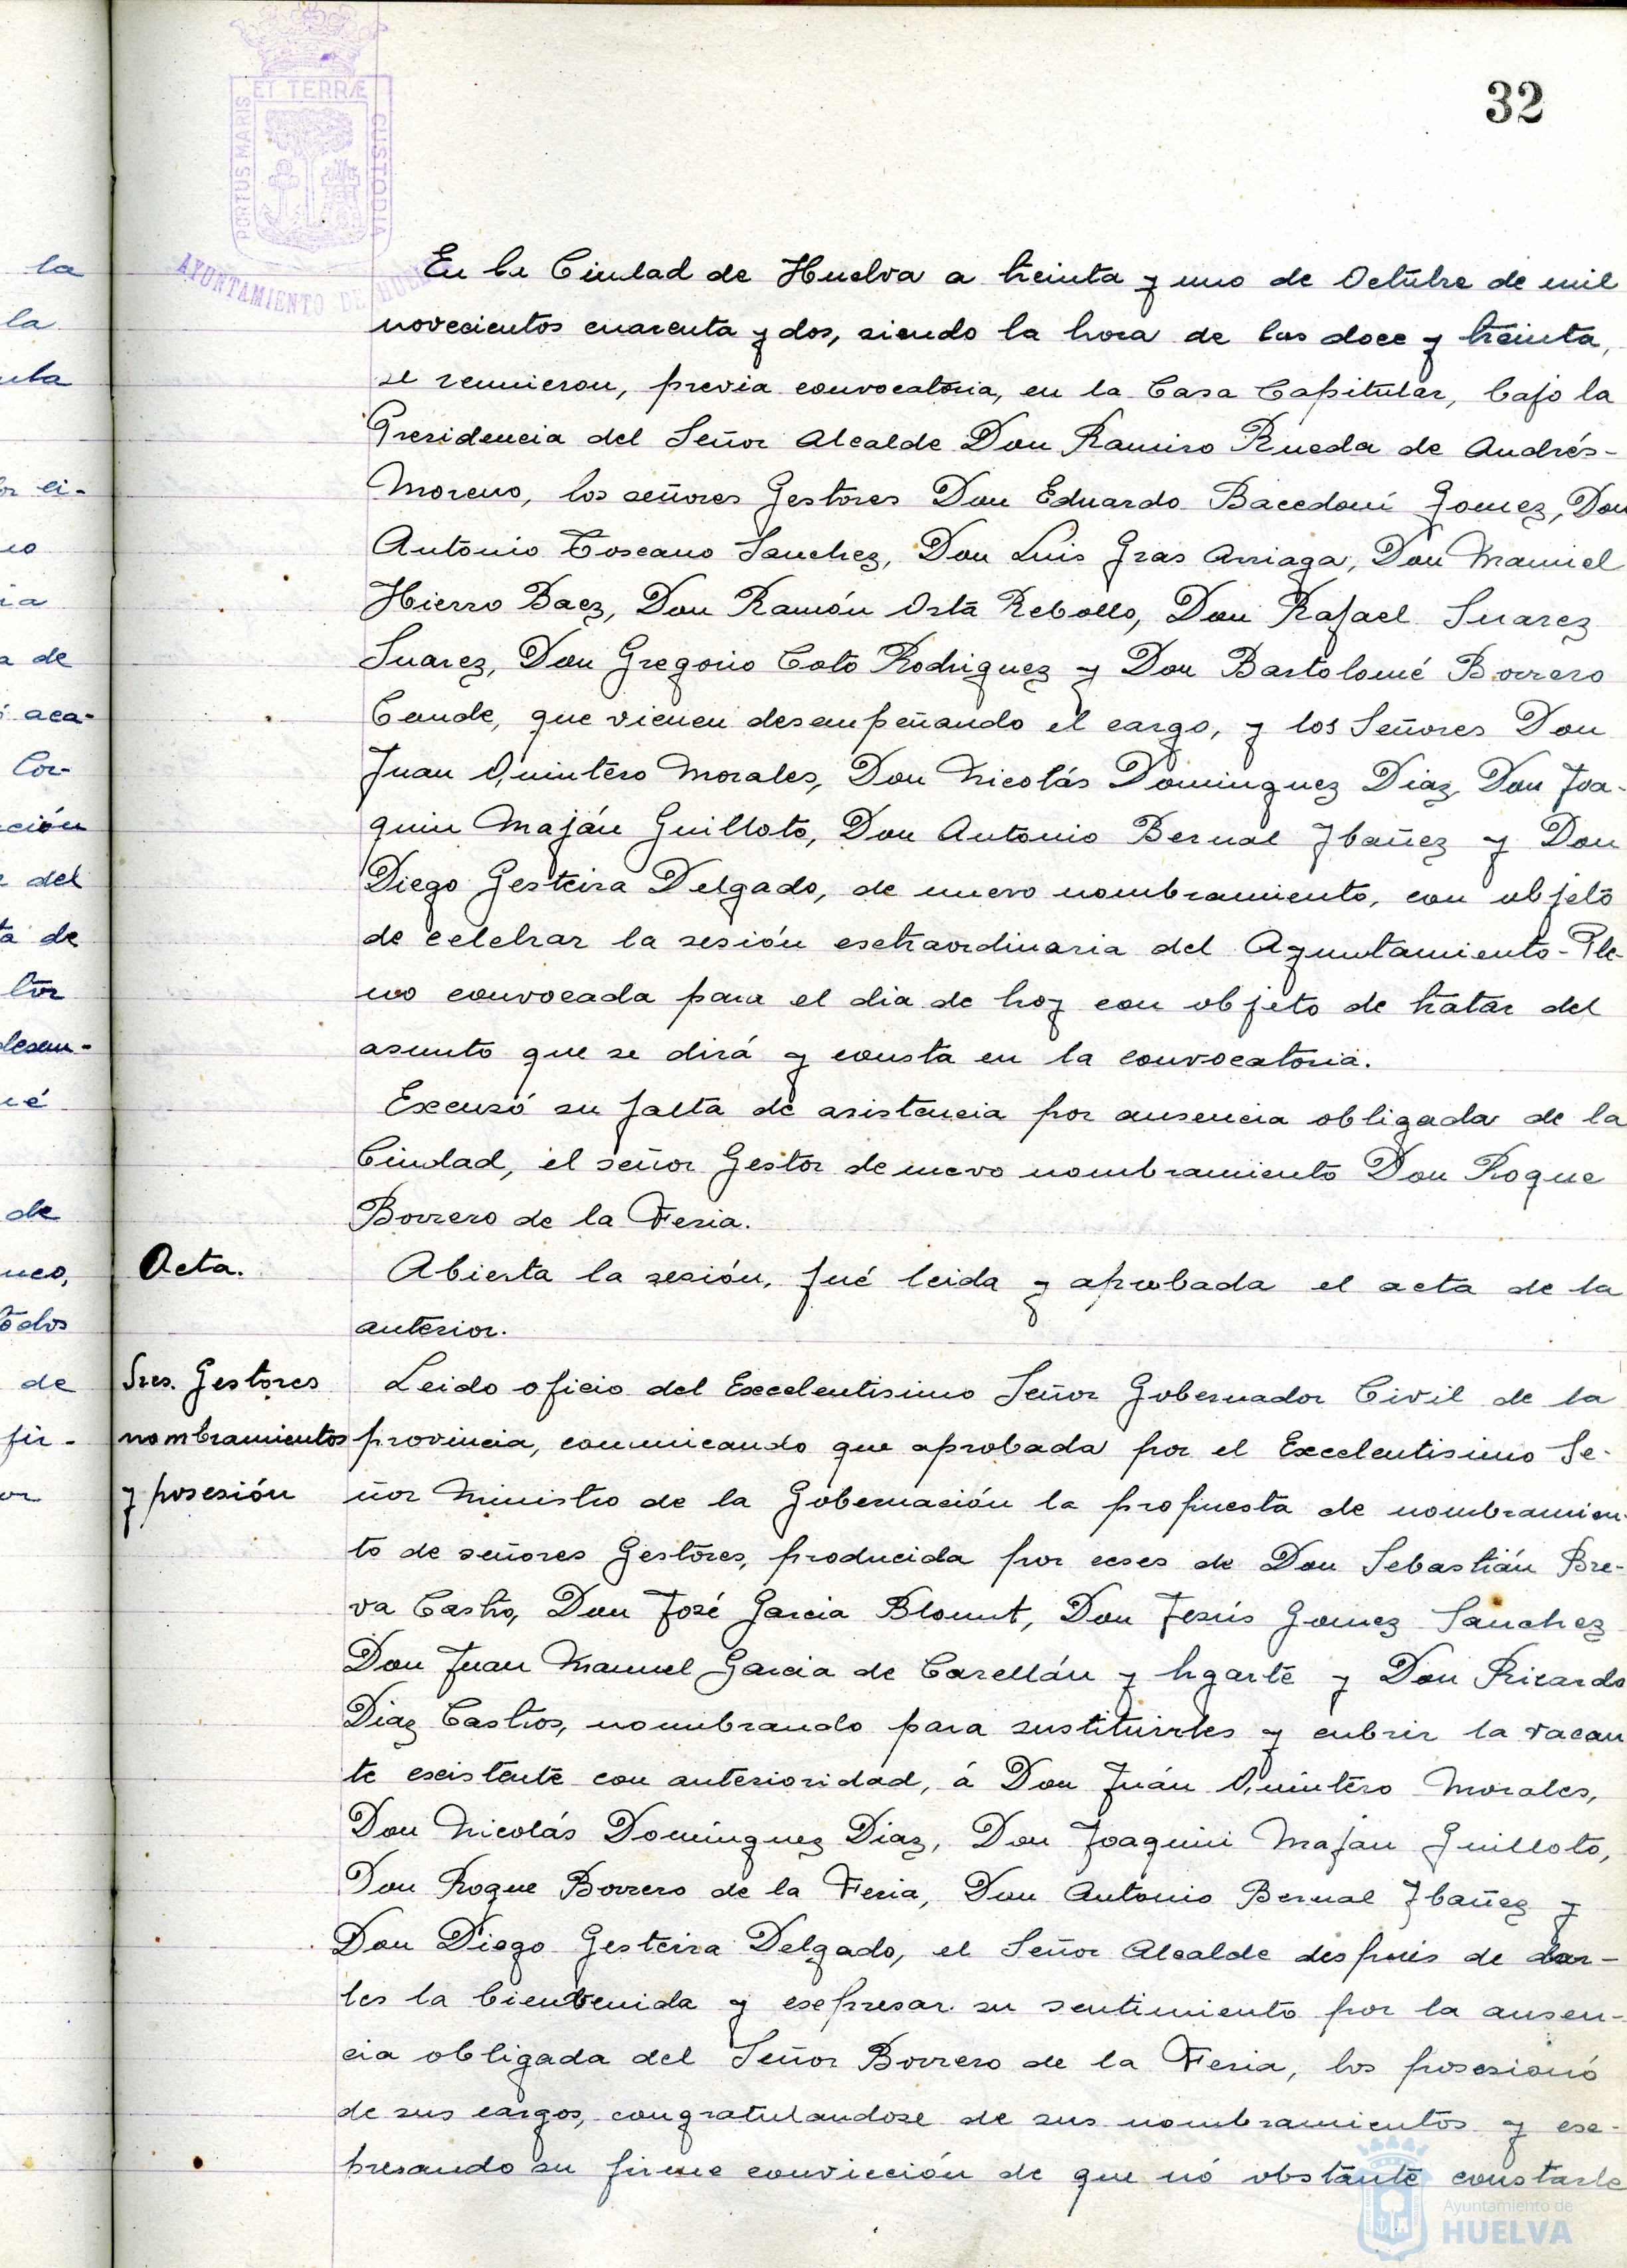 32
ET TERRÆ
PORTUS MARIS
CUSTODIA
AYUNTAMIENTO DE HUEL
En la Ciudad de Huelva a treinta y uno de Octubre de mil
novecientos cuarenta y dos, siendo la hora de las doce y treinta,
se reunieron, previa convocatoria, en la Casa Capitular, bajo la
Presidencia del Señor Alcalde Don Ramiro Rueda de Andrés-
Moreno, los señores Gestores Don Eduardo Bacedoni Gomez, Don
Antonio Toscano Sanchez, Don Luis Gras Arriaga, Don Manuel
Hierro Baez, Don Ramón Orta Rebollo, Don Rafael Suarez
Suarez, Don Gregorio Coto Rodriguez y Don Bartolomé Borrero
Conde, que vienen desempeñando el cargo, y los Señores Don
Juan Quintero Morales, Don Nicolás Dominguez Diaz, Don Joa-
quin Maján Guilloto, Don Antonio Bernal Ybañez y Don
Diego Gesteira Delgado, de nuevo nombramiento, con objeto
de celebrar la sesión esctraordinaria del Ayuntamiento-Ple-
no convocada para el dia de hoy con objeto de tratar del
asunto que se dirá y consta en la convocatoria.
Excusó su falta de asistencia por ausencia obligada de la
Ciudad, el señor Gestor de nuevo nombramiento Don Roque
Borrero de la Feria.
Acta.
Abierta la sesión, fué leida y aprobada el acta de la
anterior.
Sres. Gestores
nombramientos
y posesión
Leido oficio del Excelentisimo Señor Gobernador Civil de la
provincia, comunicando que aprobada por el Excelentisimo Se-
ñor Ministro de la Gobernación la propuesta de nombramien-
to de señores Gestores, producida por ceses de Don Sebastián Bre-
va Castro, Don José Garcia Blount, Don Jesús Gomez Sanchez
Don Juan Manuel Garcia de Carellán y Ugarte y Don Ricardo
Diaz Castros, nombrando para sustituirles y cubrir la vacan
te escistente con anterioridad, á Don Juán Quintero Morales,
Don Nicolás Domínguez Diaz, Don Joaquin Majan Guilloto,
Don Roque Borrero de la Feria, Don Antonio Bernal Ybañez y
Don Diego Gesteira Delgado, el Señor Alcalde despues de dar-
les la bienbenida y escpresar su sentimiento por la ausen-
cia obligada del Señor Borrero de la Feria, los posesionó
de sus cargos, congratulandose de sus nombramientos y esc-
presando su firme convicción de que nó obstante constarle
la
la
de
aca-
Cor-
ción
del
de
desem-
de
de
Ayuntamiento de
HUELVA